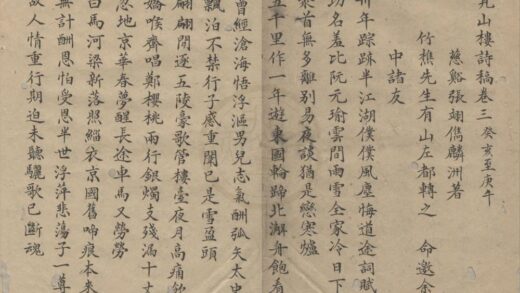 山樓詩稿卷三 癸亥至庚午
慈谿張翊儁麟洲著
竹樵先生有山左都轉之 命邀余
中諸友
卅年踪跡半江湖僕僕風塵悔道途詞賦
功名羞比阮元瑜雲間雨雪全家冷日下
首無多離別易夜談猶是戀寒爐
五千里作一年遊東國輪蹄北澥舟飽看
曾經滄海悟浮漚男兒志氣酬弧矢太史
飄泊不禁行子感重闈已是雪盈頭
翩翩閒逐五陵豪歌管樓臺夜月高痛飲
嬌喉齊唱鄭櫻桃兩行銀燭支殘漏十丈
忽地京華春夢醒長途車馬又勞勞
白馬河梁新落照緇衣京國舊啼痕本來
無計酬恩怕受恩半世浮萍悲蕩子一尊
故人情重行期迫未聽驪歌已斷魂